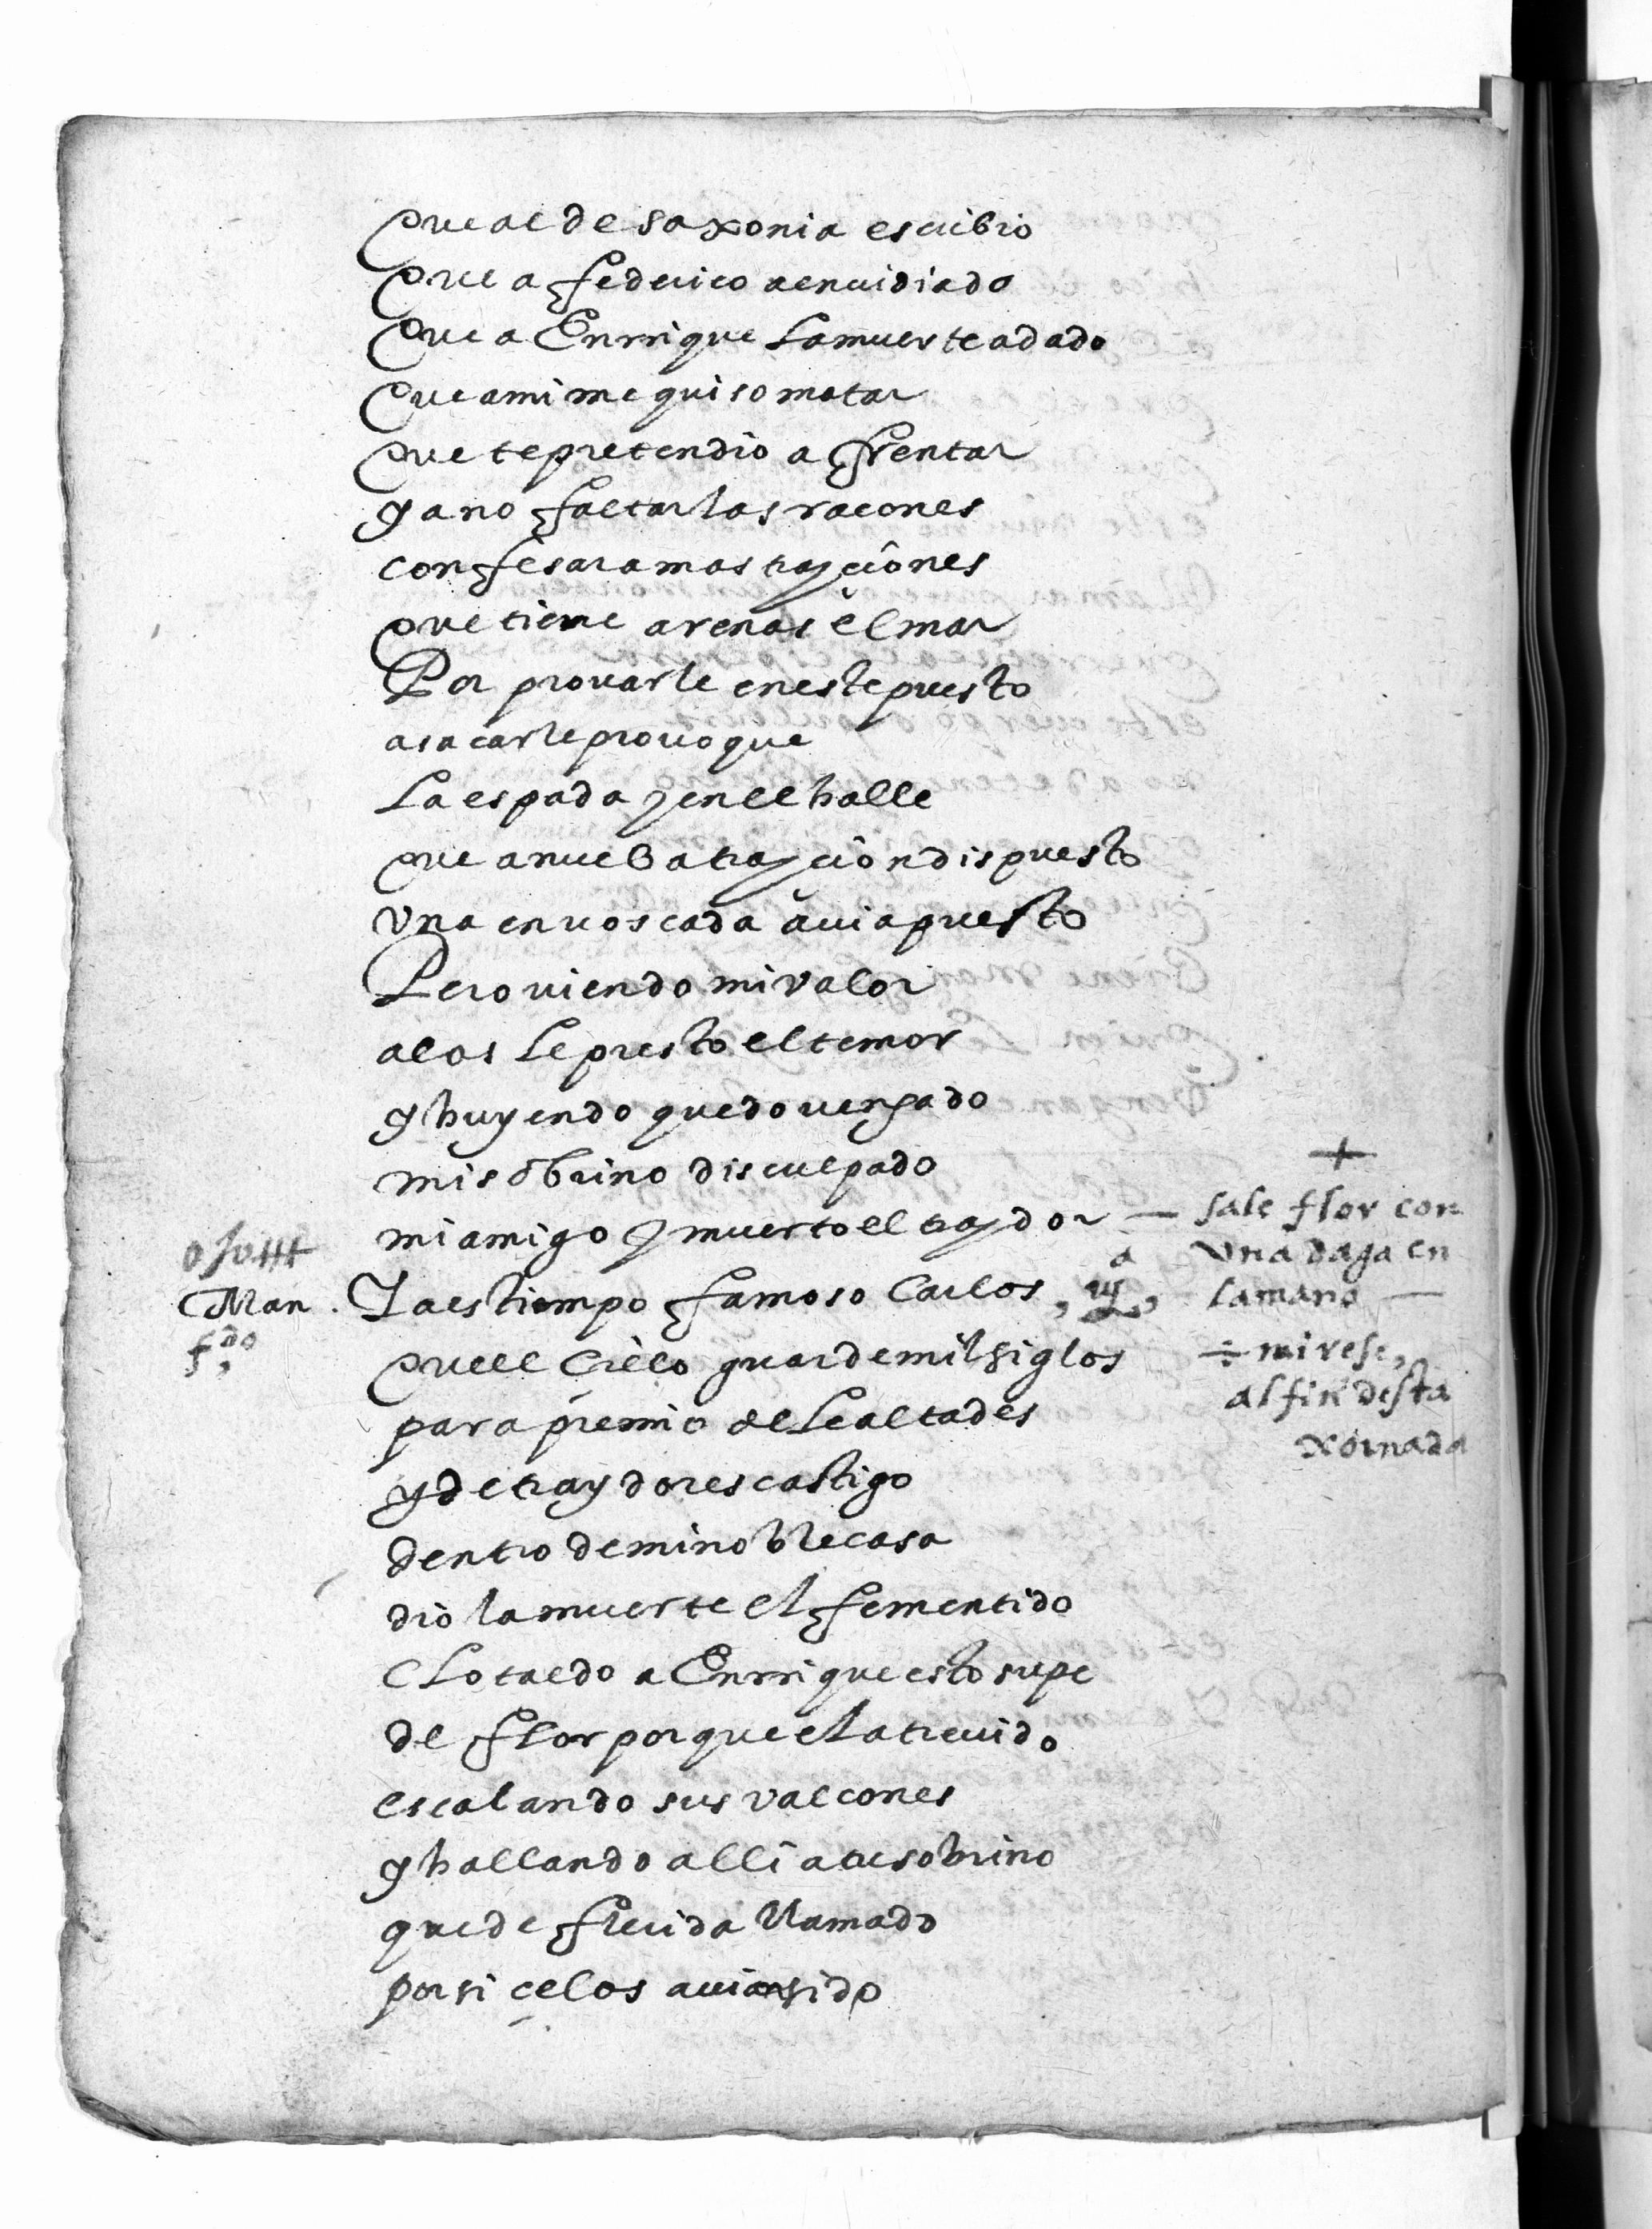 que al de saxonia escribio
que a federico a enuidiado
que a Enrrique la muerte a dado
que a mi me quiso matar
que te pretendio a frentar
y a no faltar las raçones
confesara mas trayciones
que tiene arenas el mar
Por prouarle en este puesto
a sacarle prouoque
la espada y en el halle
que a nueba traycion dispuesto
Vna enuoscada auia puesto
Pero uiendo mi valor
alas le presto el temor
y huyendo quedo uengado
mi sobrino disculpado
mi amigo y muerto el traydor — sale flor con
Vna daga en
la mano —
Man
f.do
Ya es tiempo famoso Carlos
÷ mirese,
al fin desta
xornada
que el cielo guarde mil siglos
para premio de lealtades
y de traydores castigo
dentro de mi noble casa
dio la muerte el fementido
Clotaldo a Enrrique esto supe
de flor porque el atreuido
escalando sus valcones
y hallando alli a tu sobrino
que de flerida llamado
por si celos auian sido